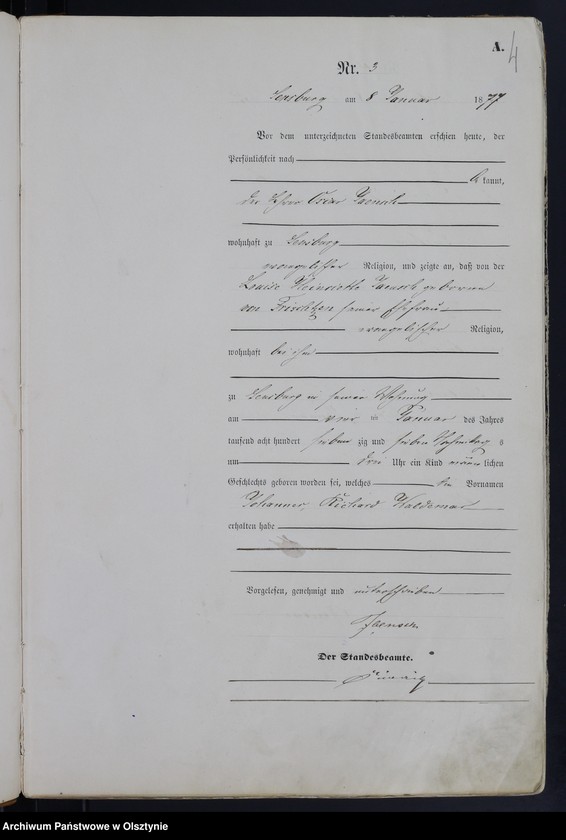 A.
4
Nr. 3
Sensburg am 8 Januar 1877
Vor dem unterzeichneten Standesbeamten erschien heute, der
Persönlichkeit nach
be kannt,
der Lehrer Oscar Jaensch
wohnhaft zu Sensburg
evangelischer Religion, und zeigte an, daß von der
Louise Henriette Jaensch geborenen
von seiner Ehefrau
evangelischer Religion,
wohnhaft bei ihm
zu Sensburg in seiner Wohnung
am vier ten Januar des Jahres
tausend acht hundert sieben zig und sieben s
um drei Uhr ein Kind männ lichen
Geschlechts geboren worden sei, welches die Vornamen
Johannes, Richard Waldemar
erhalten habe
Vorgelesen, genehmigt und unterschrieben
Jaensch
Der Standesbeamte.
Archiwum Państwowe w Olsztynie